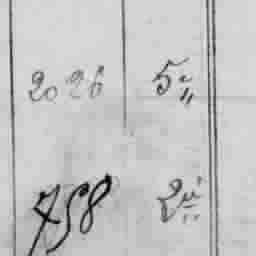 2026 5
758 2